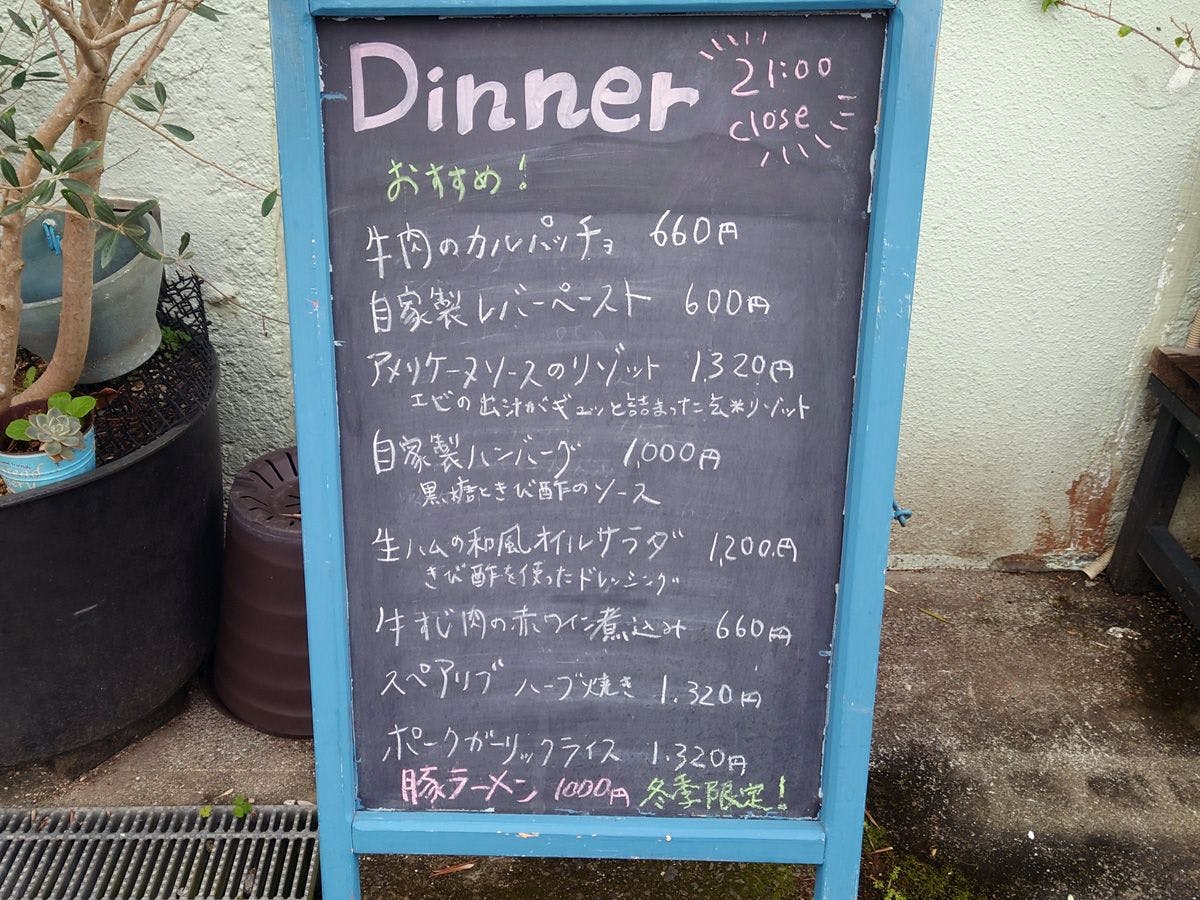 Dinner
21:00
close
おすすめ!
牛肉のカルパッチョ 660円
自家製レバーペースト 600円
アメリケーヌソースのリゾット 1,320円
エビの出汁がギュッと詰まった玄米リゾット
自家製ハンバーグ 1,000円
黒糖ときび酢のソース
生ハムの和風オイルサラダ 1,200円
きび酢を使ったドレッシング
牛すじ肉の赤ワイン煮込み 660円
スペアリブ ハーブ焼き 1.320円
ポークガーリックライス 1.320円
豚ラーメン 1000円 冬季限定!